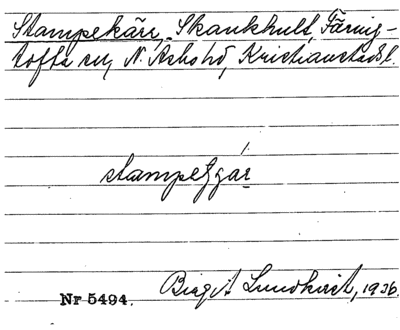 Stampekärr, Skankhult, Färing-
tofta sn, N. Åsbo hd, Kristianstads l.
stampeʒär
Birgit Lundkvist, 1936.
Nr 5494.